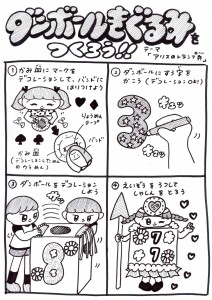 ダンボールきぐるみを
つくろう!!
テーマ
「アリスのトランプ兵」
① かみ皿にマークを
デコレーションして、バンドに
はりつけよう
りょうめん
テープ
かみ皿
② ダンボールにすう字を
かこう(デコレーションOK!)
キュッ
キュッ
③ ダンボールをデコレーション
しよう
④ えいぞうをうつして
しゃしんをとろう